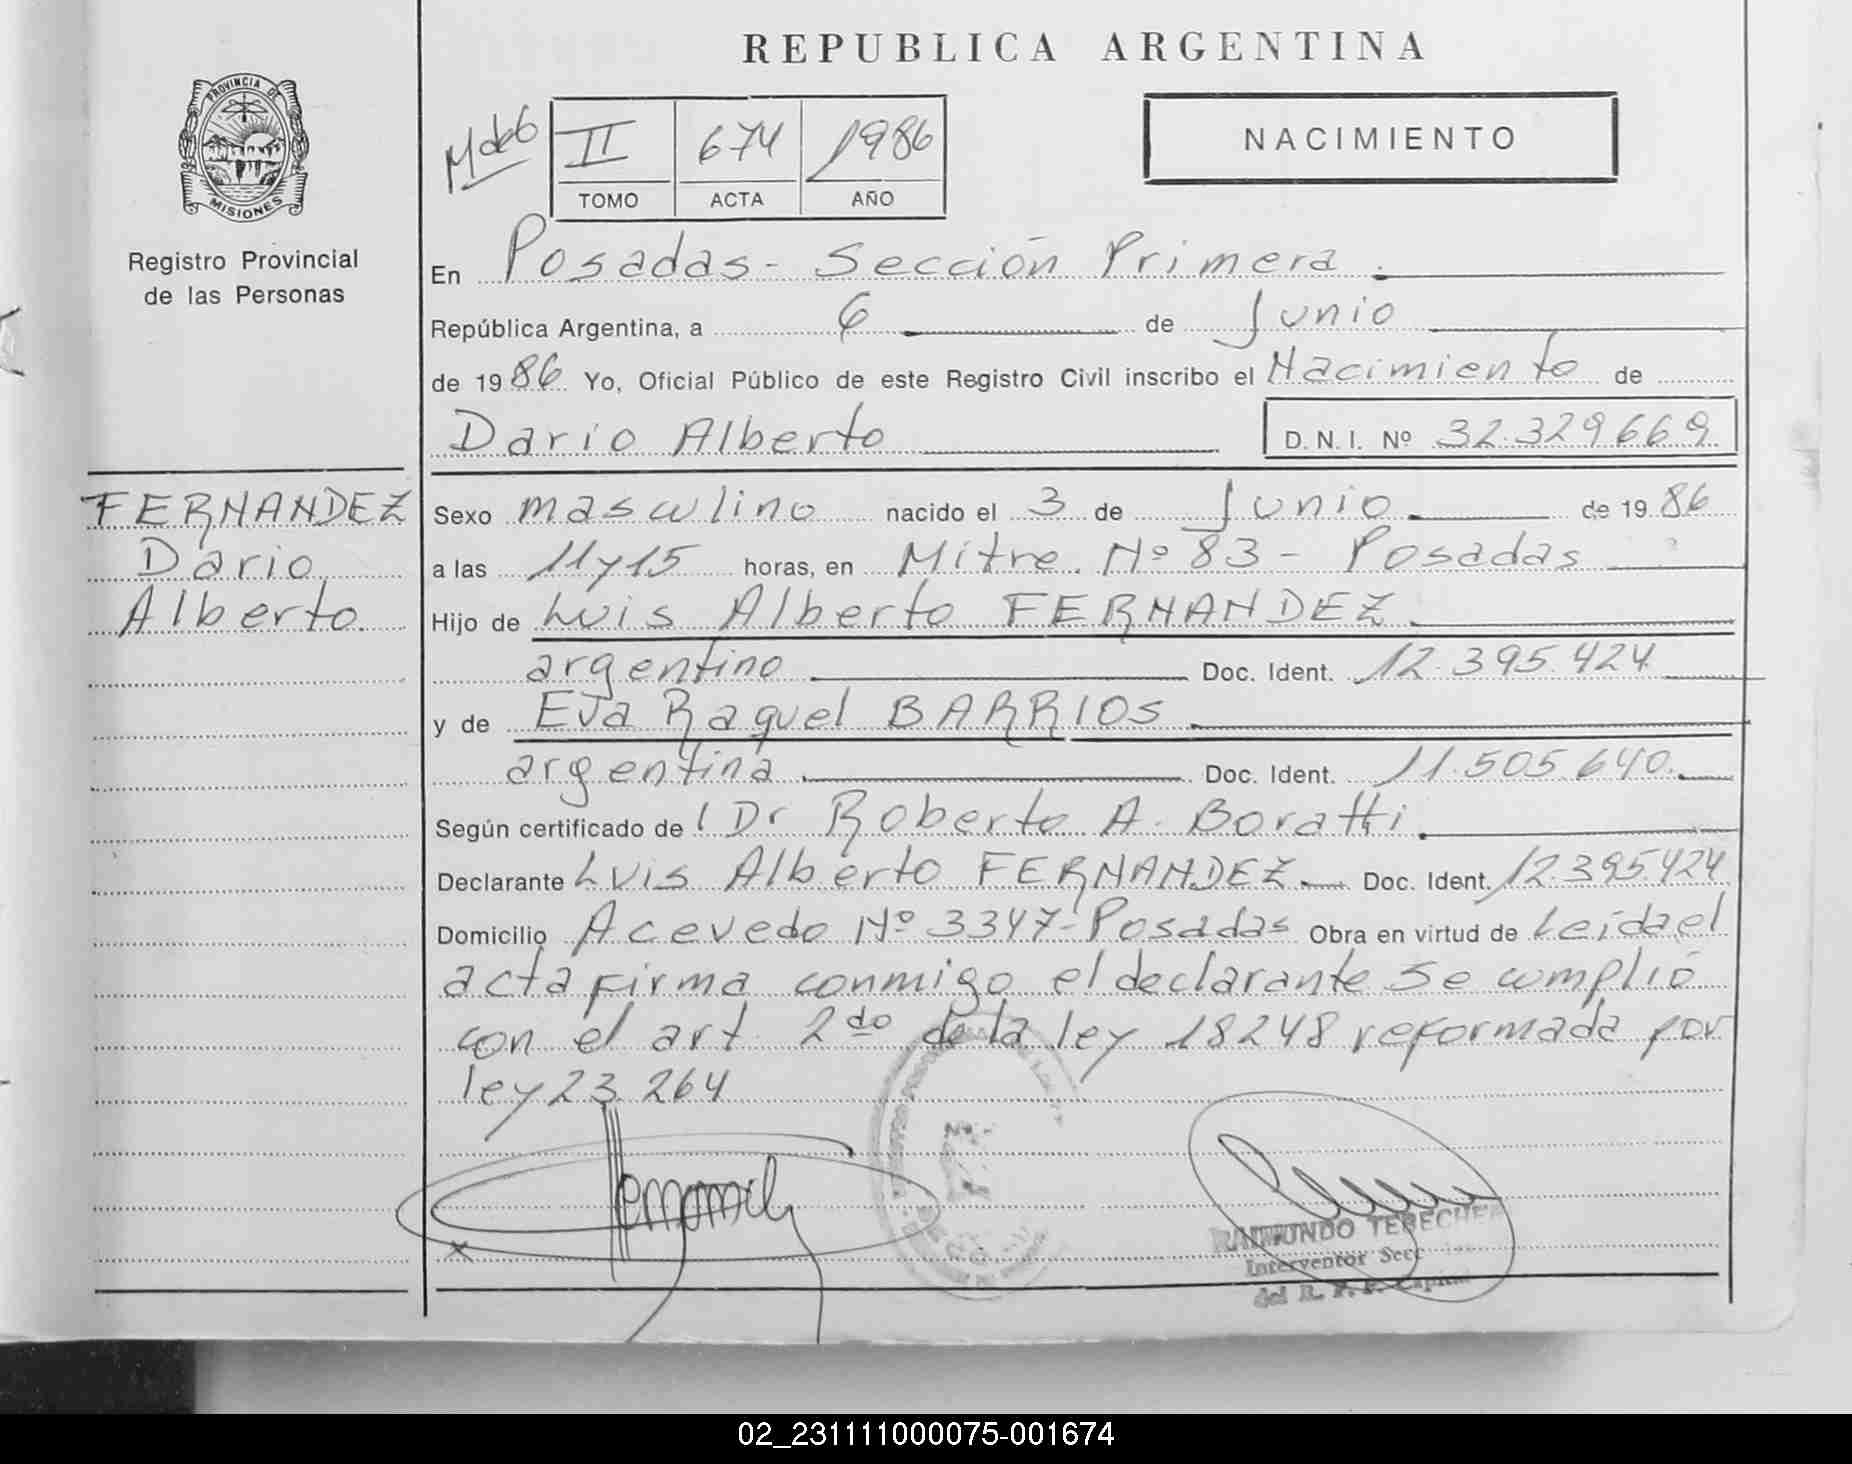 REPUBLICA ARGENTINA
PROVINCIA DE
MISIONES
Registro Provincial
de las Personas
II 674 1986
TOMO ACTA AÑO
NACIMIENTO
En Posadas - Sección Primera.
República Argentina, a 6 de Junio
de 1986 Yo, Oficial Público de este Registro Civil inscribo el Nacimiento de
Dario Alberto D.N.I. Nº 32.329669
FERNANDEZ
Dario
Alberto
Sexo masculino nacido el 3 de Junio de 1986
a las 11 y 15 horas, en Mitre. Nº 83 - Posadas
Hijo de Luis Alberto FERNANDEZ
argentino Doc. Ident. 12.395.424
y de Eva Raquel BARRIOS
argentina Doc. Ident. 11.505.640.
Según certificado del Dr Roberto A. Boratti
Declarante Luis Alberto FERNANDEZ Doc. Ident. 12395.424
Domicilio Acevedo Nº 3347 - Posadas Obra en virtud de Leída el
acta firma conmigo el declarante Se cumplió
con el art. 2do de la ley 18248 reformada por
ley 23.264
RAIMUNDO
Interventor
del R. P. P. Capital
02_231111000075-001674